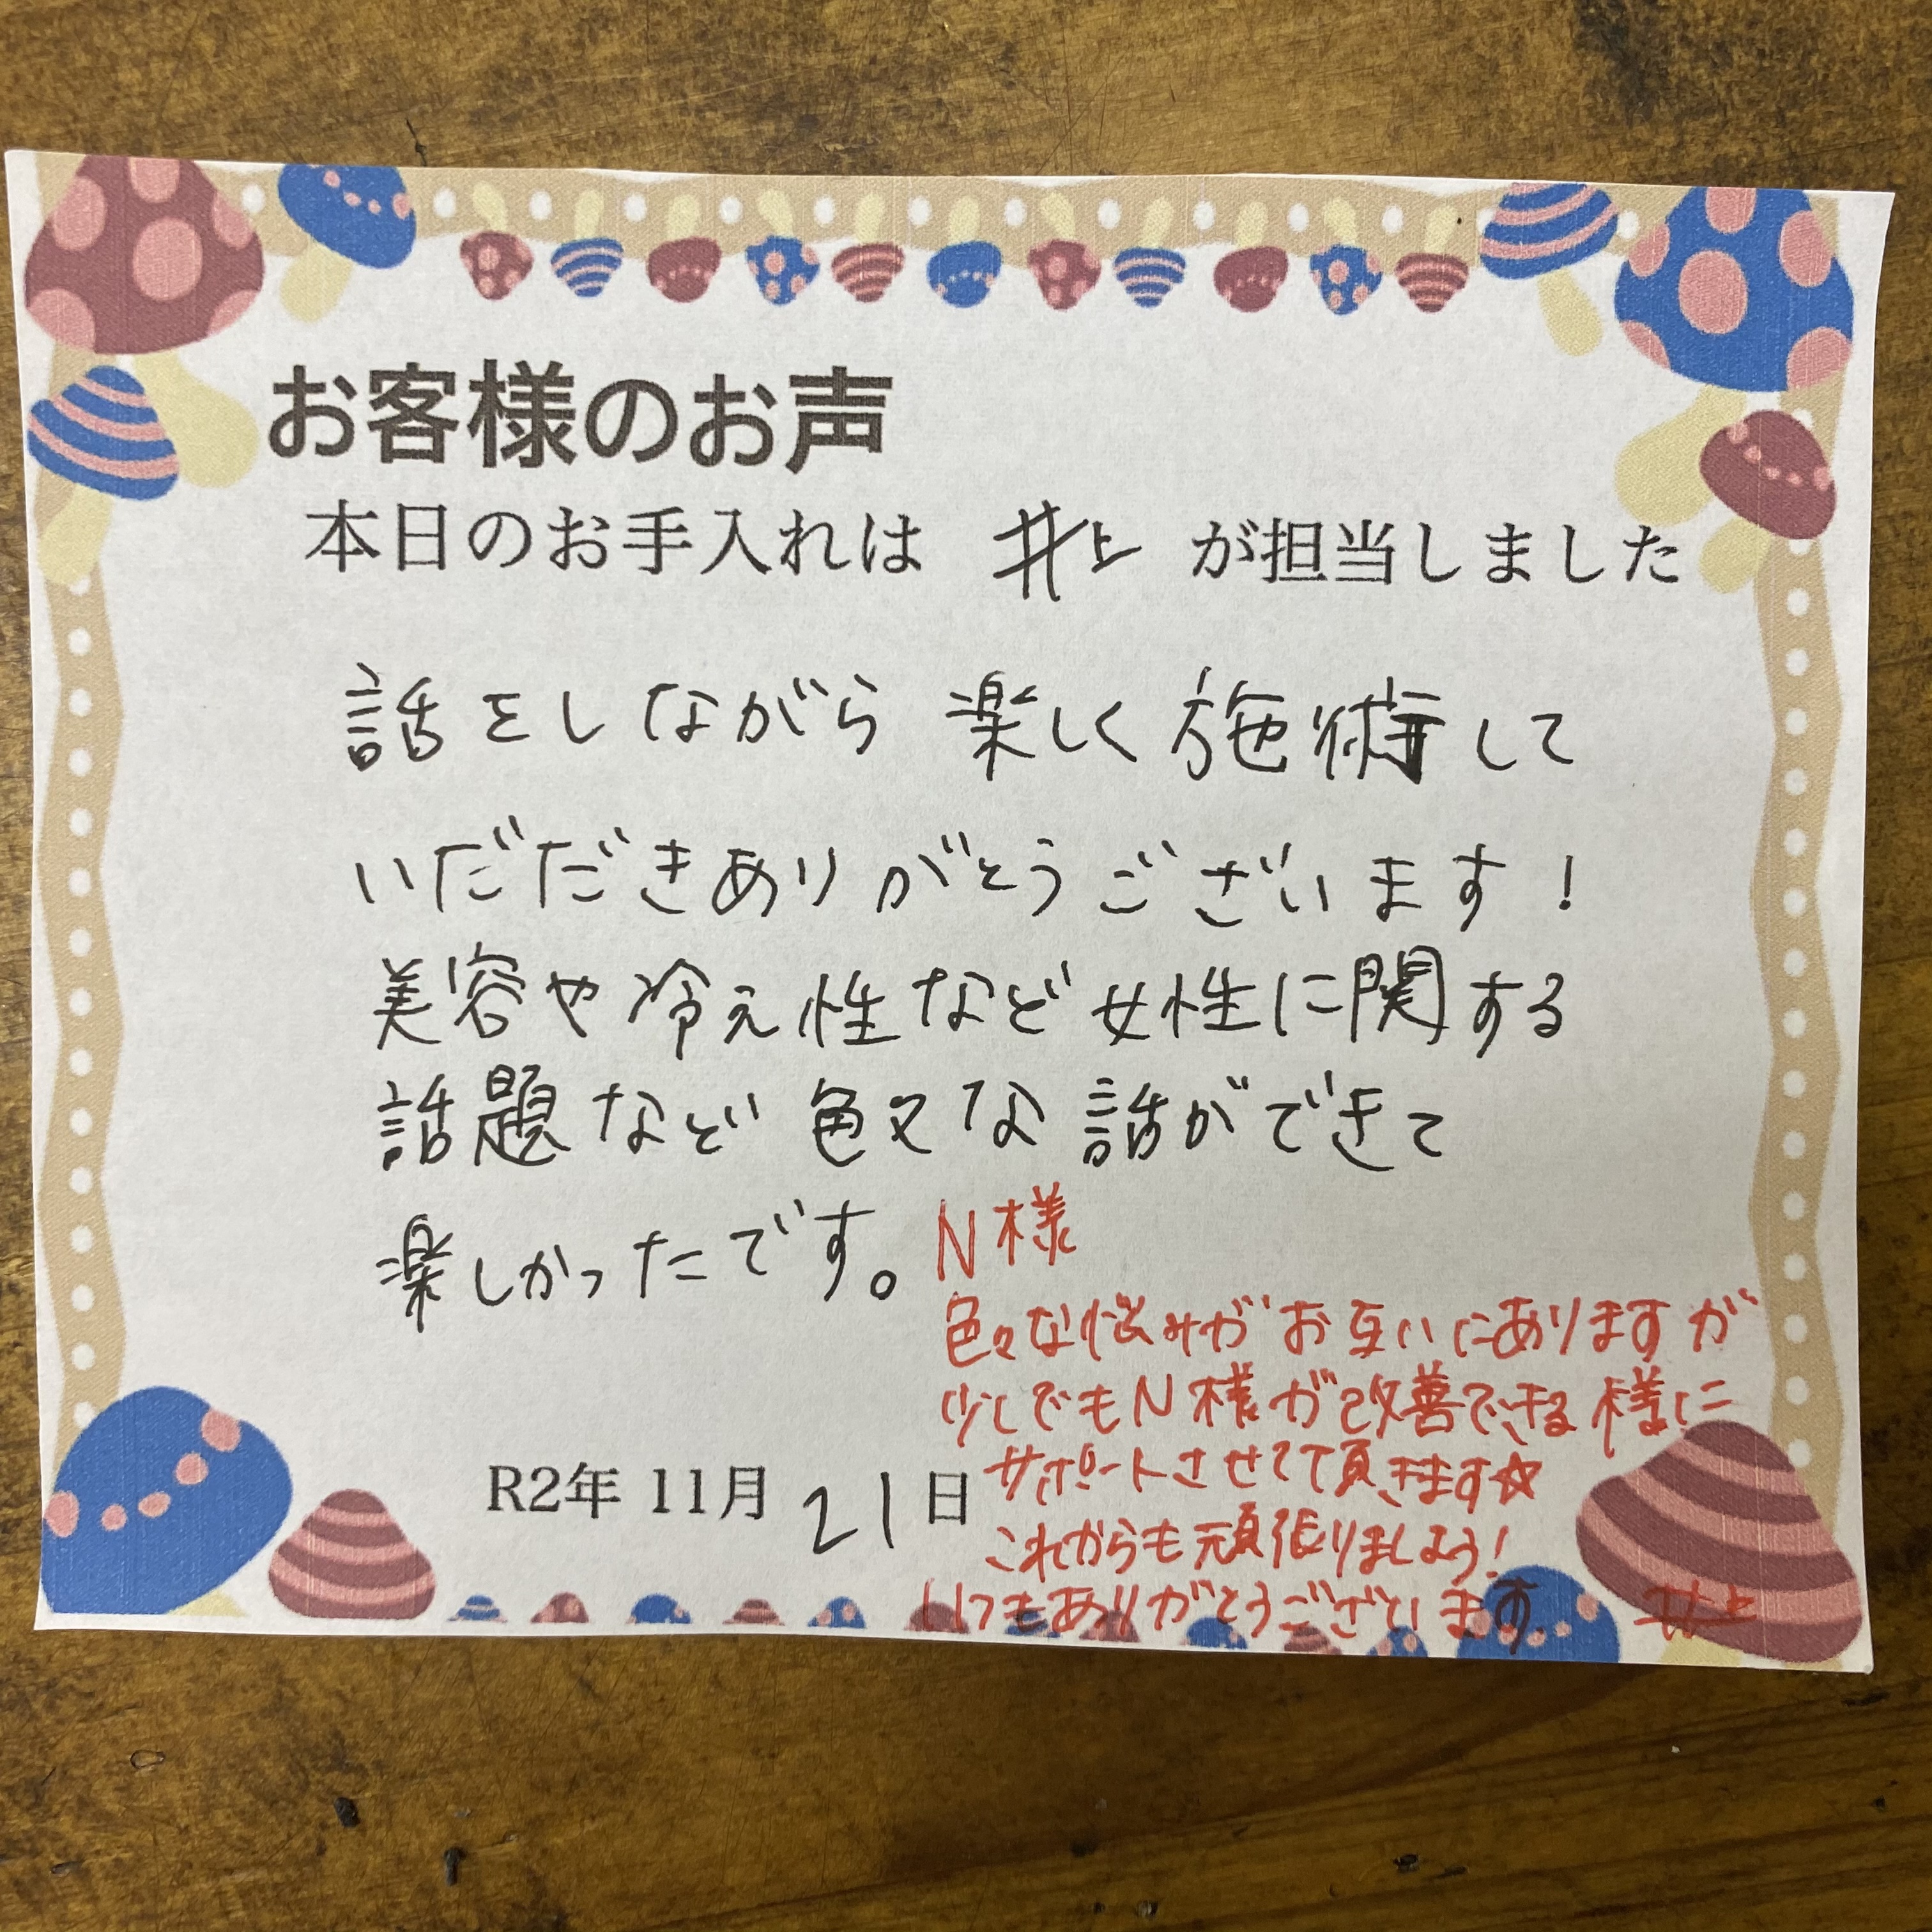 お客様のお声
本日のお手入れは 井上 が担当しました
話をしながら 楽しく施術して
いだだきありがとうございます！
美容や冷え性など女性に関する
話題など色々な話ができて
楽しかったです。
N様
色々な悩みがお互いにありますが
少しでもN様が改善できる様に
サポートさせて頂きます☆
これからも頑張りましょう！
いつもありがとうございます。 井上
R2年 11月 21日